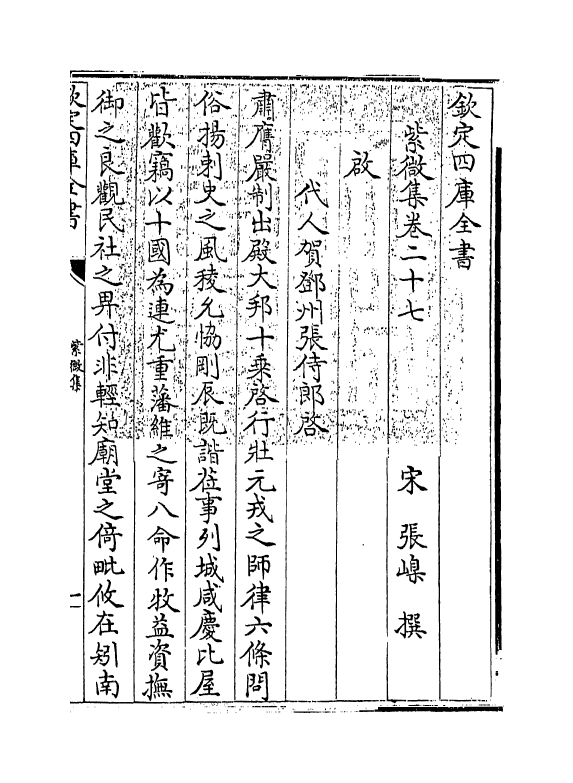 欽定四庫全書
紫微集卷二十七
宋 張嵲 撰
啟
代人賀鄧州張侍郎啓
肅膺嚴制出殿大邦十乗啓行壯元戎之師律六條問
俗揚刺史之風稜允協剛辰既諧莅事列城咸慶比屋
皆歡竊以十國為連尤重藩維之寄八命作牧益資撫
御之良觀民社之畀付非輕知廟堂之倚毗攸在矧南
欽定四庫全書
紫微集
一